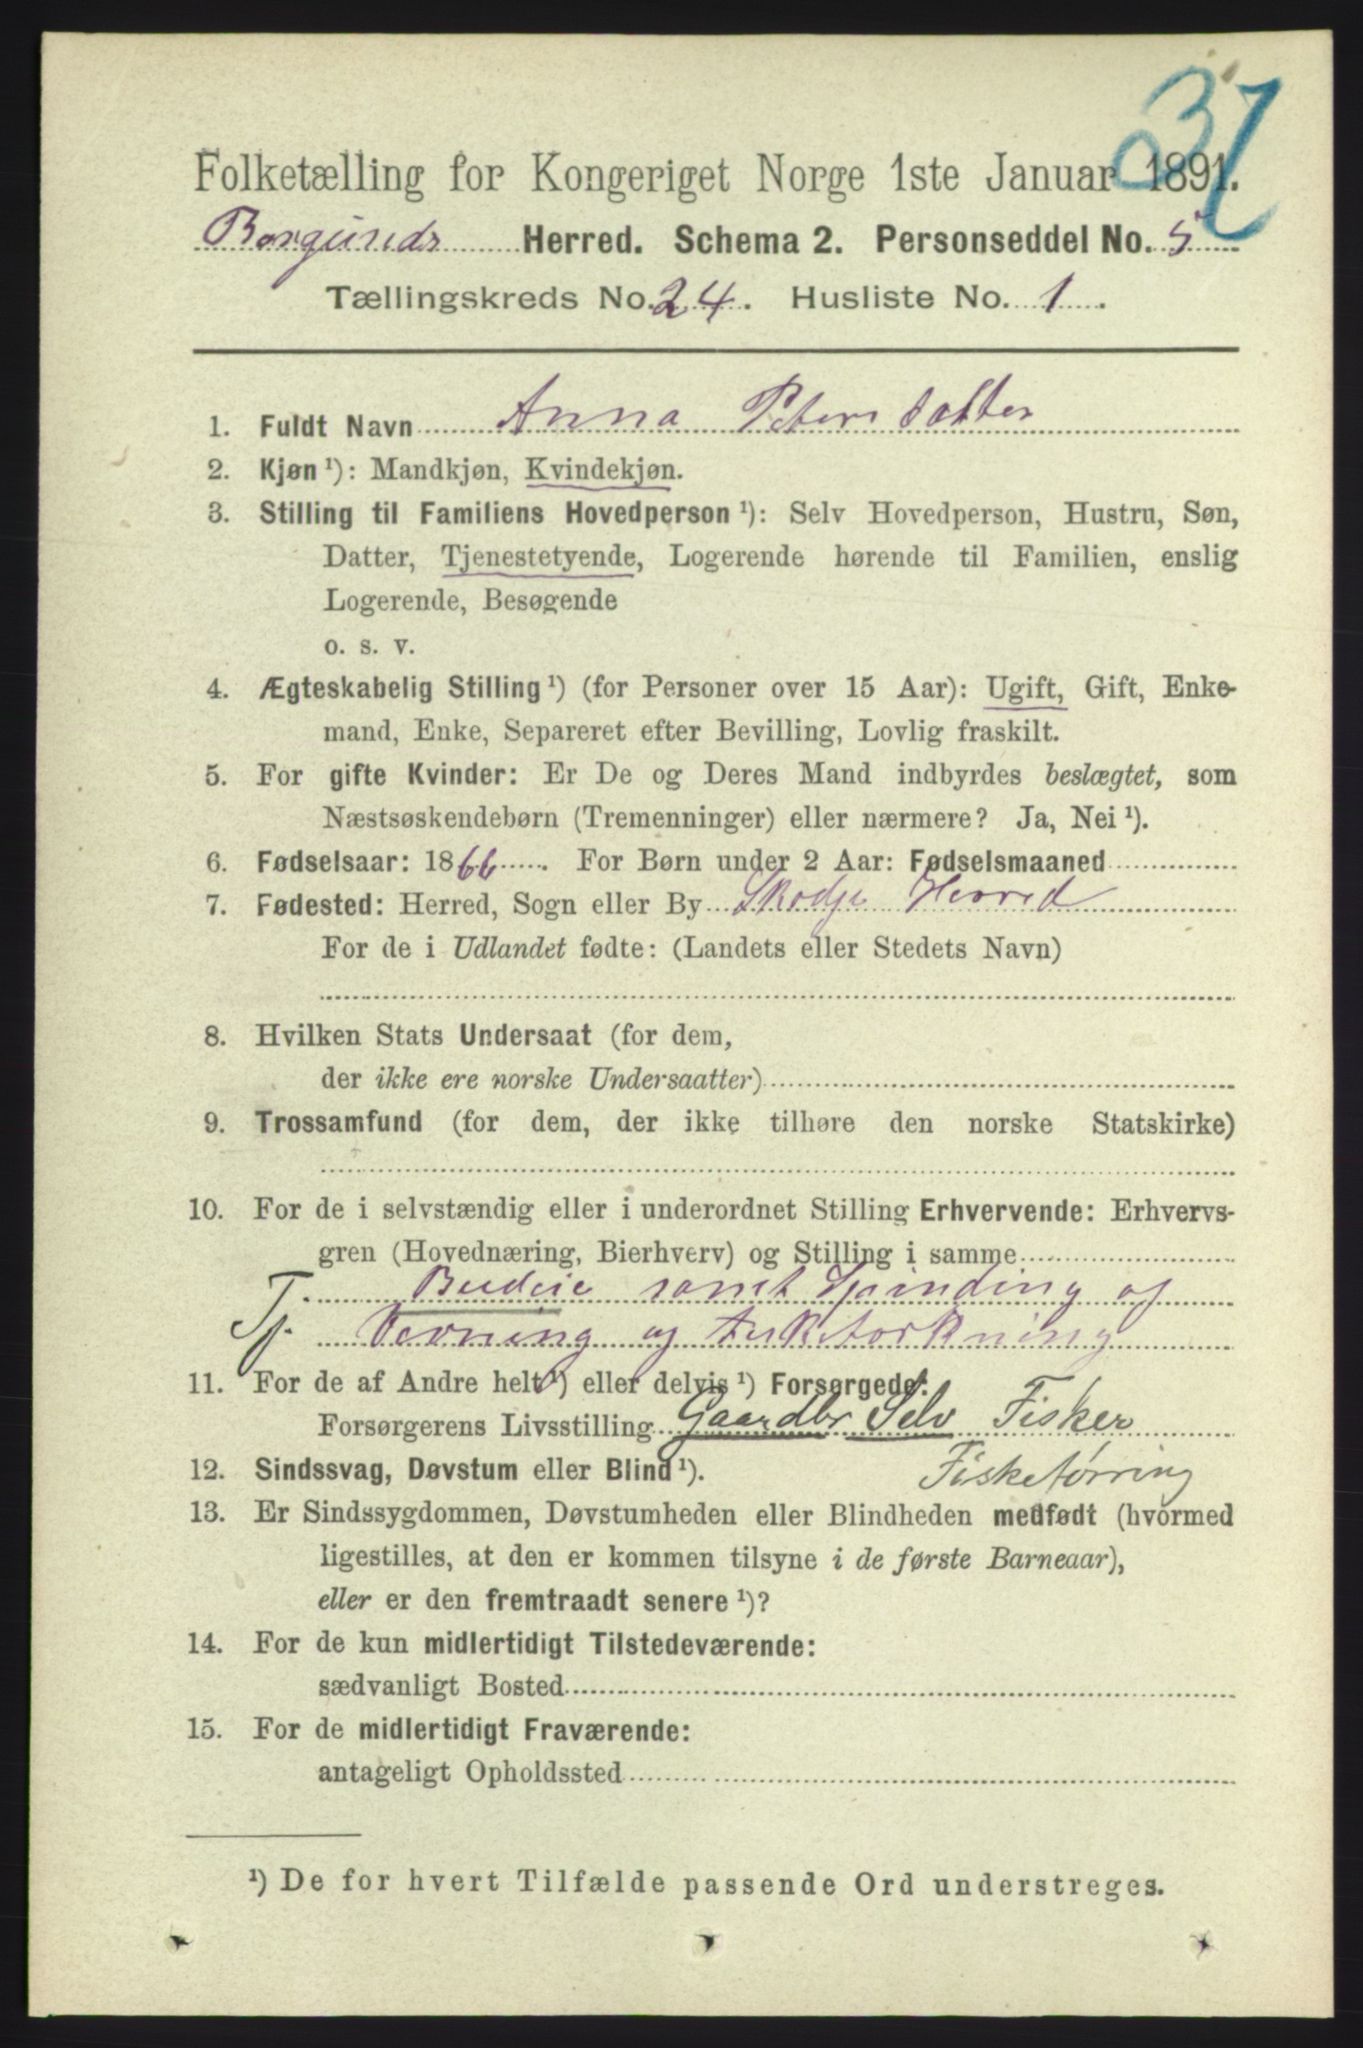 37
Folketælling for Kongeriget Norge 1ste Januar 1891.
Borgunds Herred. Schema 2. Personseddel No. 5
Tællingskreds No. 24. Husliste No. 1.
1. Fuldt Navn Anna Petersdatter
2. Kjøn ¹): Mandkjøn, Kvindekjøn.
3. Stilling til Familiens Hovedperson ¹): Selv Hovedperson, Hustru, Søn,
Datter, Tjenestetyende, Logerende hørende til Familien, enslig
Logerende, Besøgende
o. s. v.
4. Ægteskabelig Stilling ¹) (for Personer over 15 Aar): Ugift, Gift, Enke-
mand, Enke, Separeret efter Bevilling, Lovlig fraskilt.
5. For gifte Kvinder: Er De og Deres Mand indbyrdes beslægtet, som
Næstsøskendebørn (Tremenninger) eller nærmere? Ja, Nei ¹).
6. Fødselsaar: 1866. For Børn under 2 Aar: Fødselsmaaned
7. Fødested: Herred, Sogn eller By Skodje Herred
For de i Udlandet fødte: (Landets eller Stedets Navn)
8. Hvilken Stats Undersaat (for dem,
der ikke ere norske Undersaatter)
9. Trossamfund (for dem, der ikke tilhøre den norske Statskirke)
10. For de i selvstændig eller i underordnet Stilling Erhvervende: Erhvervs-
gren (Hovednæring, Bierhverv) og Stilling i samme
Tj. Budeie samt Spinding af
Vevning og
11. For de af Andre helt ¹) eller delvis ¹) Forsørgede:
Forsørgerens Livsstilling Gaardbr Selv Fisker
12. Sindssvag, Døvstum eller Blind ¹). Fisketørring
13. Er Sindssygdommen, Døvstumheden eller Blindheden medfødt (hvormed
ligestilles, at den er kommen tilsyne i de første Barneaar),
eller er den fremtraadt senere ¹)?
14. For de kun midlertidigt Tilstedeværende:
sædvanligt Bosted
15. For de midlertidigt Fraværende:
antageligt Opholdssted
¹) De for hvert Tilfælde passende Ord understreges.